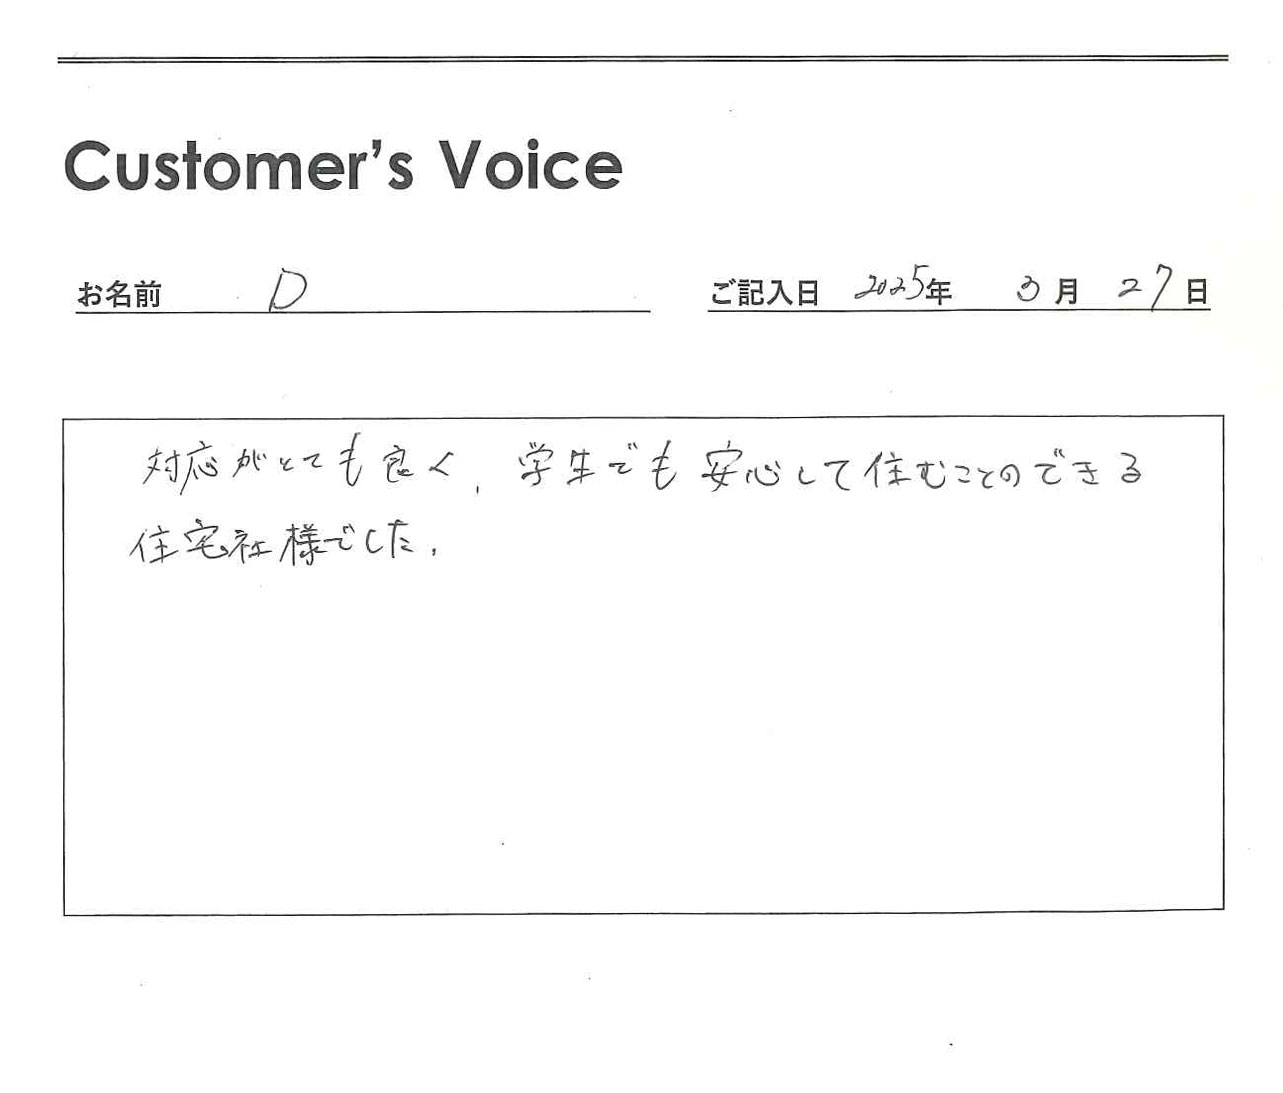 Customer's Voice
お名前 D ご記入日 2025年 3月 27日
対応がとても良く、学生でも安心して住むことのできる
住宅社様でした。